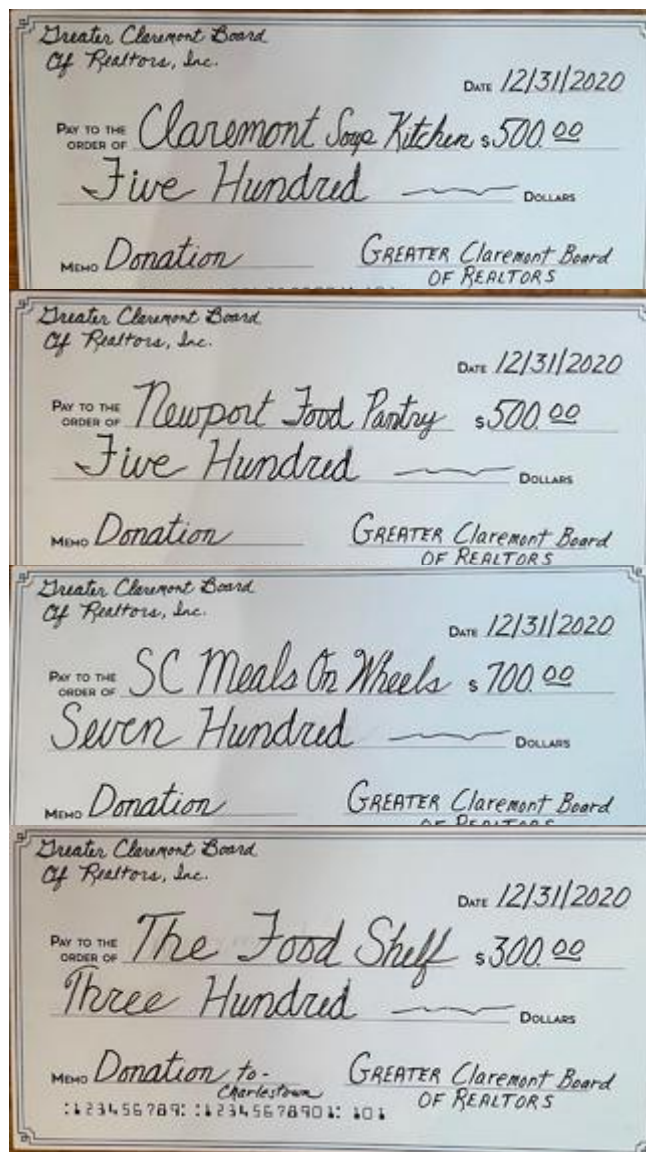 Greater Claremont Board
Of Realtors, Inc.
DATE 12/31/2020
PAY TO THE ORDER OF Claremont Soup Kitchen $500.00
Five Hundred DOLLARS
MEMO Donation GREATER Claremont Board
OF REALTORS
Greater Claremont Board
Of Realtors, Inc.
DATE 12/31/2020
PAY TO THE ORDER OF Newport Food Pantry $500.00
Five Hundred DOLLARS
MEMO Donation GREATER Claremont Board
OF REALTORS
Greater Claremont Board
Of Realtors, Inc.
DATE 12/31/2020
PAY TO THE ORDER OF SC Meals On Wheels $700.00
Seven Hundred DOLLARS
MEMO Donation GREATER Claremont Board
OF REALTORS
Greater Claremont Board
Of Realtors, Inc.
DATE 12/31/2020
PAY TO THE ORDER OF The Food Shelf $300.00
Three Hundred DOLLARS
MEMO Donation to- GREATER Claremont Board
Charlestown OF REALTORS
⑆123456789⑆ ⑆12345678901⑆ 101